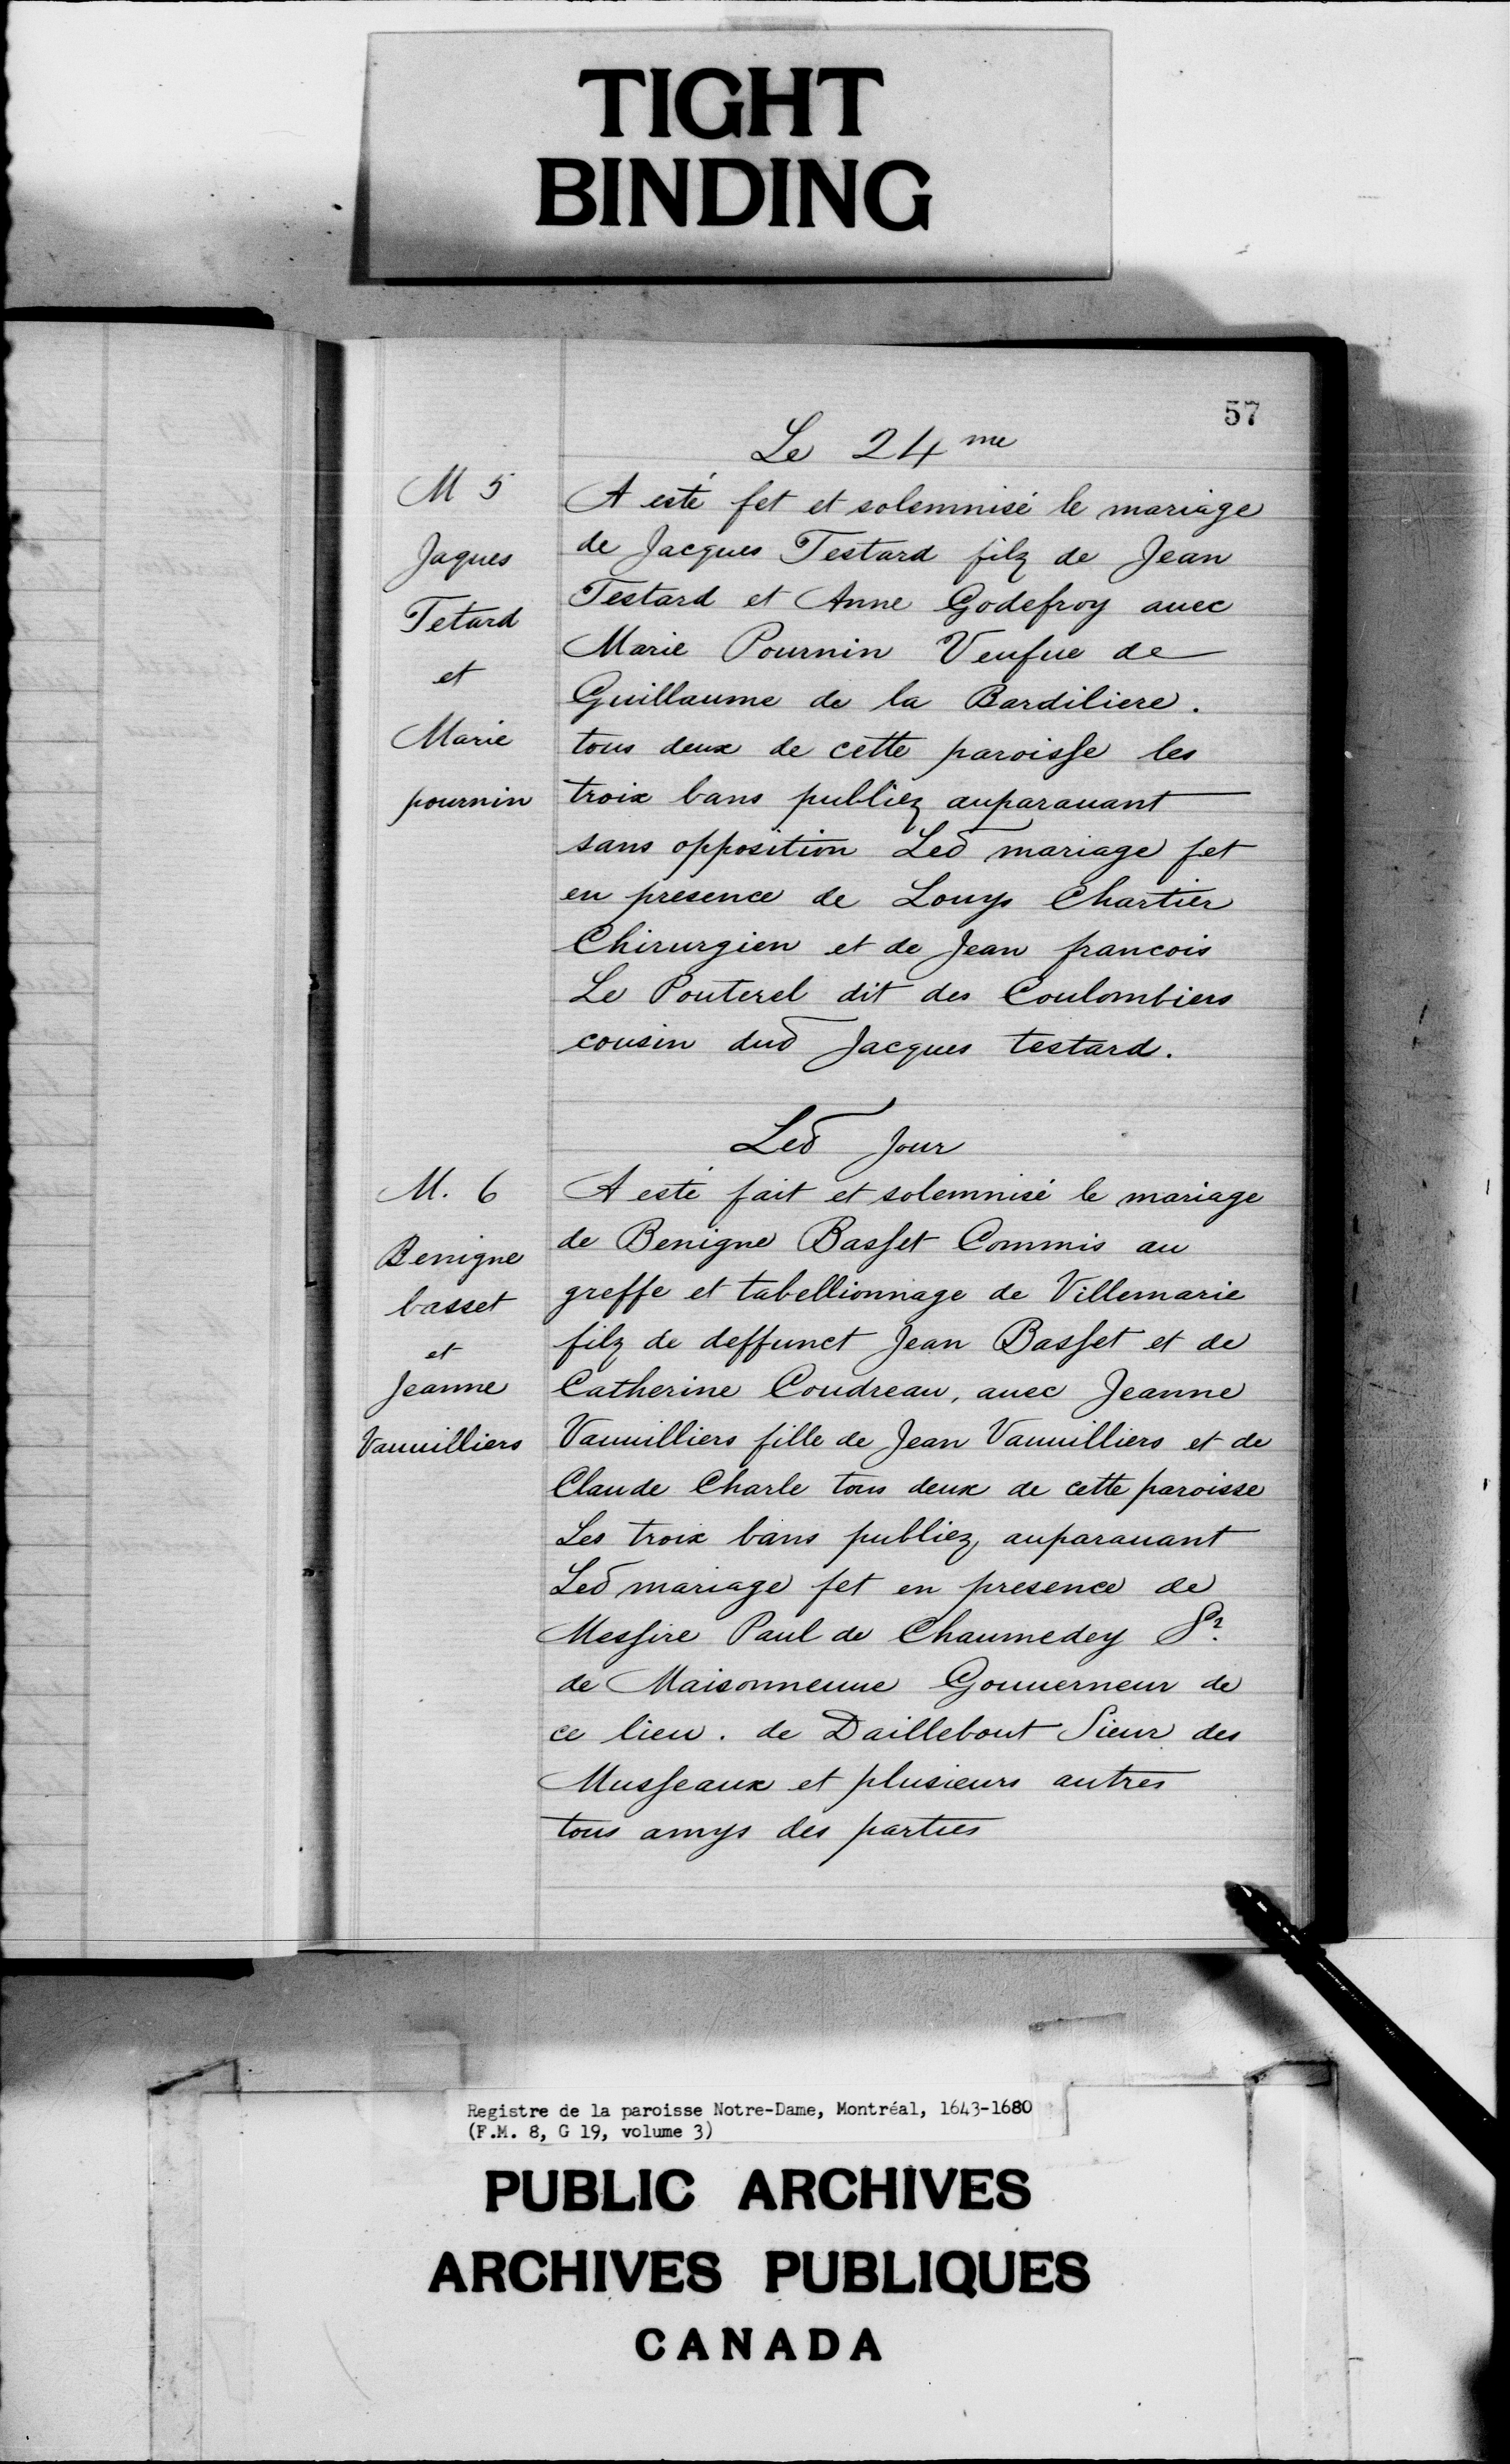 TIGHT
BINDING
57
Le 24me
M 5
Jaques
Tetard
et
Marie
pournin
A esté fet et solemnisé le mariage
de Jacques Testard filz de Jean
Testard et Anne Godefroy auec
Marie Pournin Veufue de
Guillaume de la Bardiliere.
tous deux de cette paroisse les
troix bans publiez auparauant
sans opposition Led mariage fet
en presence de Louys Chartier
Chirurgien et de Jean francois
Le Pouterel dit des Coulombiers
cousin dud Jacques testard.
Led Jour
M. 6
Benigne
basset
et
Jeanne
Vauuilliers
A esté fait et solemnisé le mariage
de Benigne Basset Commis au
greffe et tabellionnage de Villemarie
filz de deffunct Jean Basset et de
Catherine Coudreau, auec Jeanne
Vauuilliers fille de Jean Vauuilliers et de
Claude Charle tous deux de cette paroisse
Les troix bans publiez auparauant
Led mariage fet en presence de
Messire Paul de Chaumedey Sr.
de Maisonneuue Gouuerneur de
ce lieu. de Daillebout Sieur des
Musseaux et plusieurs autres
tous amys des parties
Registre de la paroisse Notre-Dame, Montréal, 1643-1680
(F.M. 8, G 19, volume 3)
PUBLIC ARCHIVES
ARCHIVES PUBLIQUES
CANADA